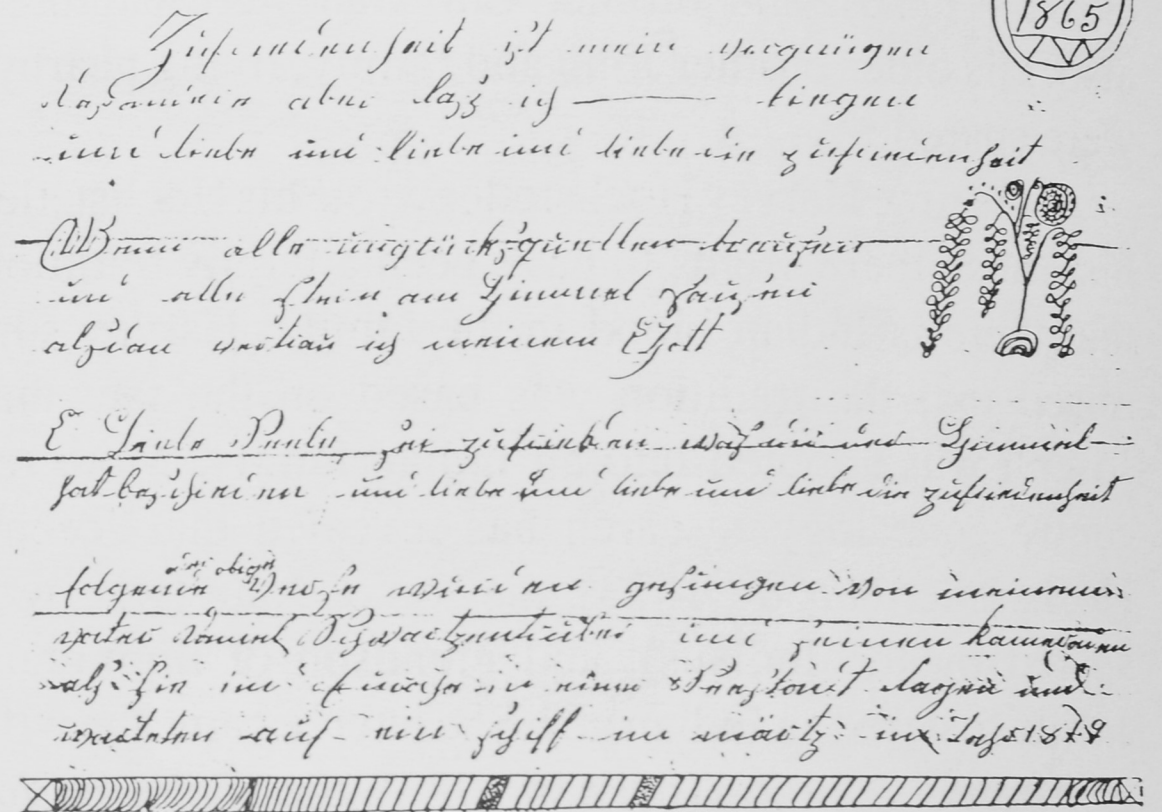 1865
Zufriedenheit ist mein vergnügen
aber lasz ich ——— liegen
und liebe und liebe und liebe die zufriedenheit
Wenn alle unglücksquellen brausen
und alle am Himmel sausen
alsdan vertrau ich meinem Gott
Seele sei zufrieden was dir der Himmel
hat beschieden und liebe und liebe und liebe die zufriedenheit
drei obige
folgende Verse wurden gesungen von meinem
vater Daniel Schwartzentruber und seinen kameraden
als sie in einer Seestadt lagen und
warteten auf ein schiff im märtz im Jahr